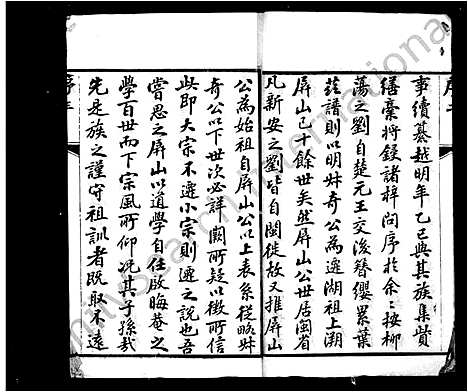 序二
事續纂越明年乙巳與其族集貲
繕稾將錽諸梓問序於余余按柳
蕩之劉自楚元王交後簪纓累葉
茲譜則以明姝奇公為遷湖祖上溯
屏山已十餘世矣然屏山公世居閩省
凡新安之劉皆自閩徙故又推屏山
公為始祖自屏山公以上表系從略姝
奇公以下世次必詳闕所疑以徵所信
此即大宗不遷小宗則遷之說也吾
嘗思之屏山以道學自任啟晦菴之
學百世而下宗風所仰况其子孫哉
先是族之謹守祖訓者既取不遠
序三